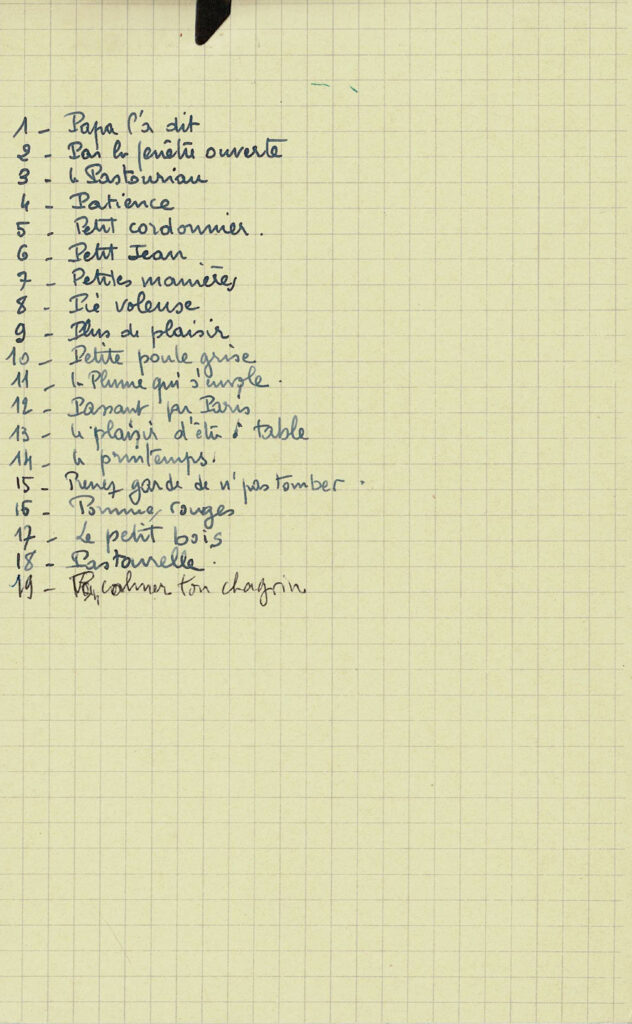 1 - Papa l'a dit
2 - Par la fenêtre ouverte
3 - le Pastouriau
4 - Patience
5 - Petit cordonnier.
6 - Petit Jean
7 - Petites manières
8 - Pie voleuse
9 - Plus de plaisir
10 - Petite poule grise
11 - la Plume qui s'envole.
12 - Passant par Paris
13 - le plaisir d'être à table
14 - le printemps.
15 - Prenez garde de n' pas tomber.
16 - Pommes rouges
17 - Le petit bois
18 - Pastourelle.
19 - Pour calmer ton chagrin